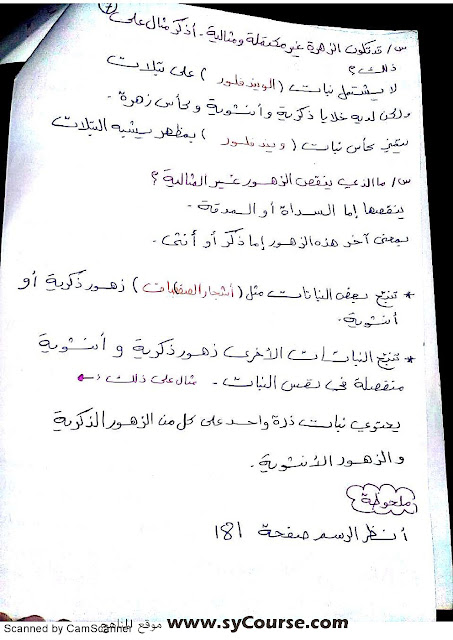 س/ قد تكون الزهرة غير مكتملة ومثالية - أذكر مثال على
ذلك؟
لا يشتمل نبات (الويندفلور) على بتلات
ولكن لديه خلايا ذكرية وأنثوية وكأس زهرة -
يتميز كأس نبات (ويندفلور) بمظهر يشبه البتلات
س/ ما الذي ينقص الزهور غير المثالية؟
ينقصها إما السداة أو المدقة -
بمعنى آخر هذه الزهور إما ذكر أو أنثى.
* تنتج بعض النباتات مثل (أشجار الصفصاف) زهور ذكرية أو
أنثوية.
* تنتج النباتات الأخرى زهور ذكرية و أنثوية
منفصلة في نفس النبات - مثال على ذلك:
يحتوي نبات ذرة واحد على كل من الزهور الذكرية
و الزهور الأنثوية.
ملحوظة
أنظر الرسم صفحة 181
موقع المناهج www.syCourse.com
Scanned by CamScanner